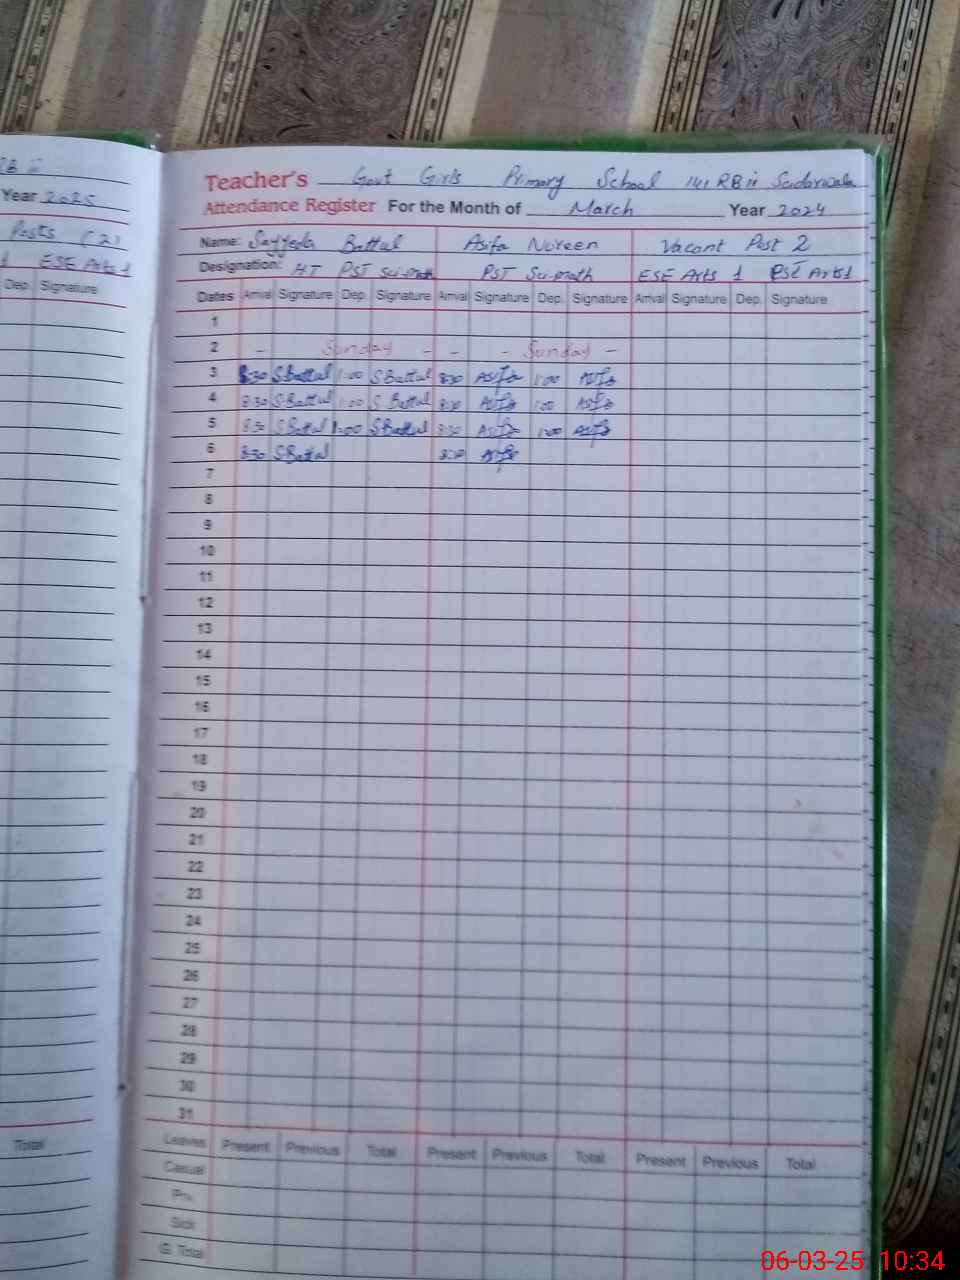 RB ii
Year 2025
Posts (2)
ESE Arts 1
Dep. Signature
Total
Teacher's Govt Girls Primary School 141 RB ii Sadarwala
Attendance Register For the Month of March Year 2024
Name: Sayyeda Battul Asifa Noreen Vacant Post 2
Designation: HT PST Sci-math PST Sci-math ESE Arts 1 PST Arts 1
Dates Arrival Signature Dep. Signature Arrival Signature Dep. Signature Arrival Signature Dep. Signature
1
2 - Sunday - - - Sunday -
3 8:30 S.Battul 1:00 S.Battul 8:30 Asifa 1:00 Asifa
4 8:30 S.Battul 1:00 S.Battul 8:30 Asifa 1:00 Asifa
5 8:30 S.Battul 1:00 S.Battul 8:30 Asifa 1:00 Asifa
6 8:30 S.Battul 8:30 Asifa
7
8
9
10
11
12
13
14
15
16
17
18
19
20
21
22
23
24
25
26
27
28
29
30
31
Leaves Present Previous Total Present Previous Total Present Previous Total
Casual
Priv.
Sick
G. Total
06-03-25 10:34